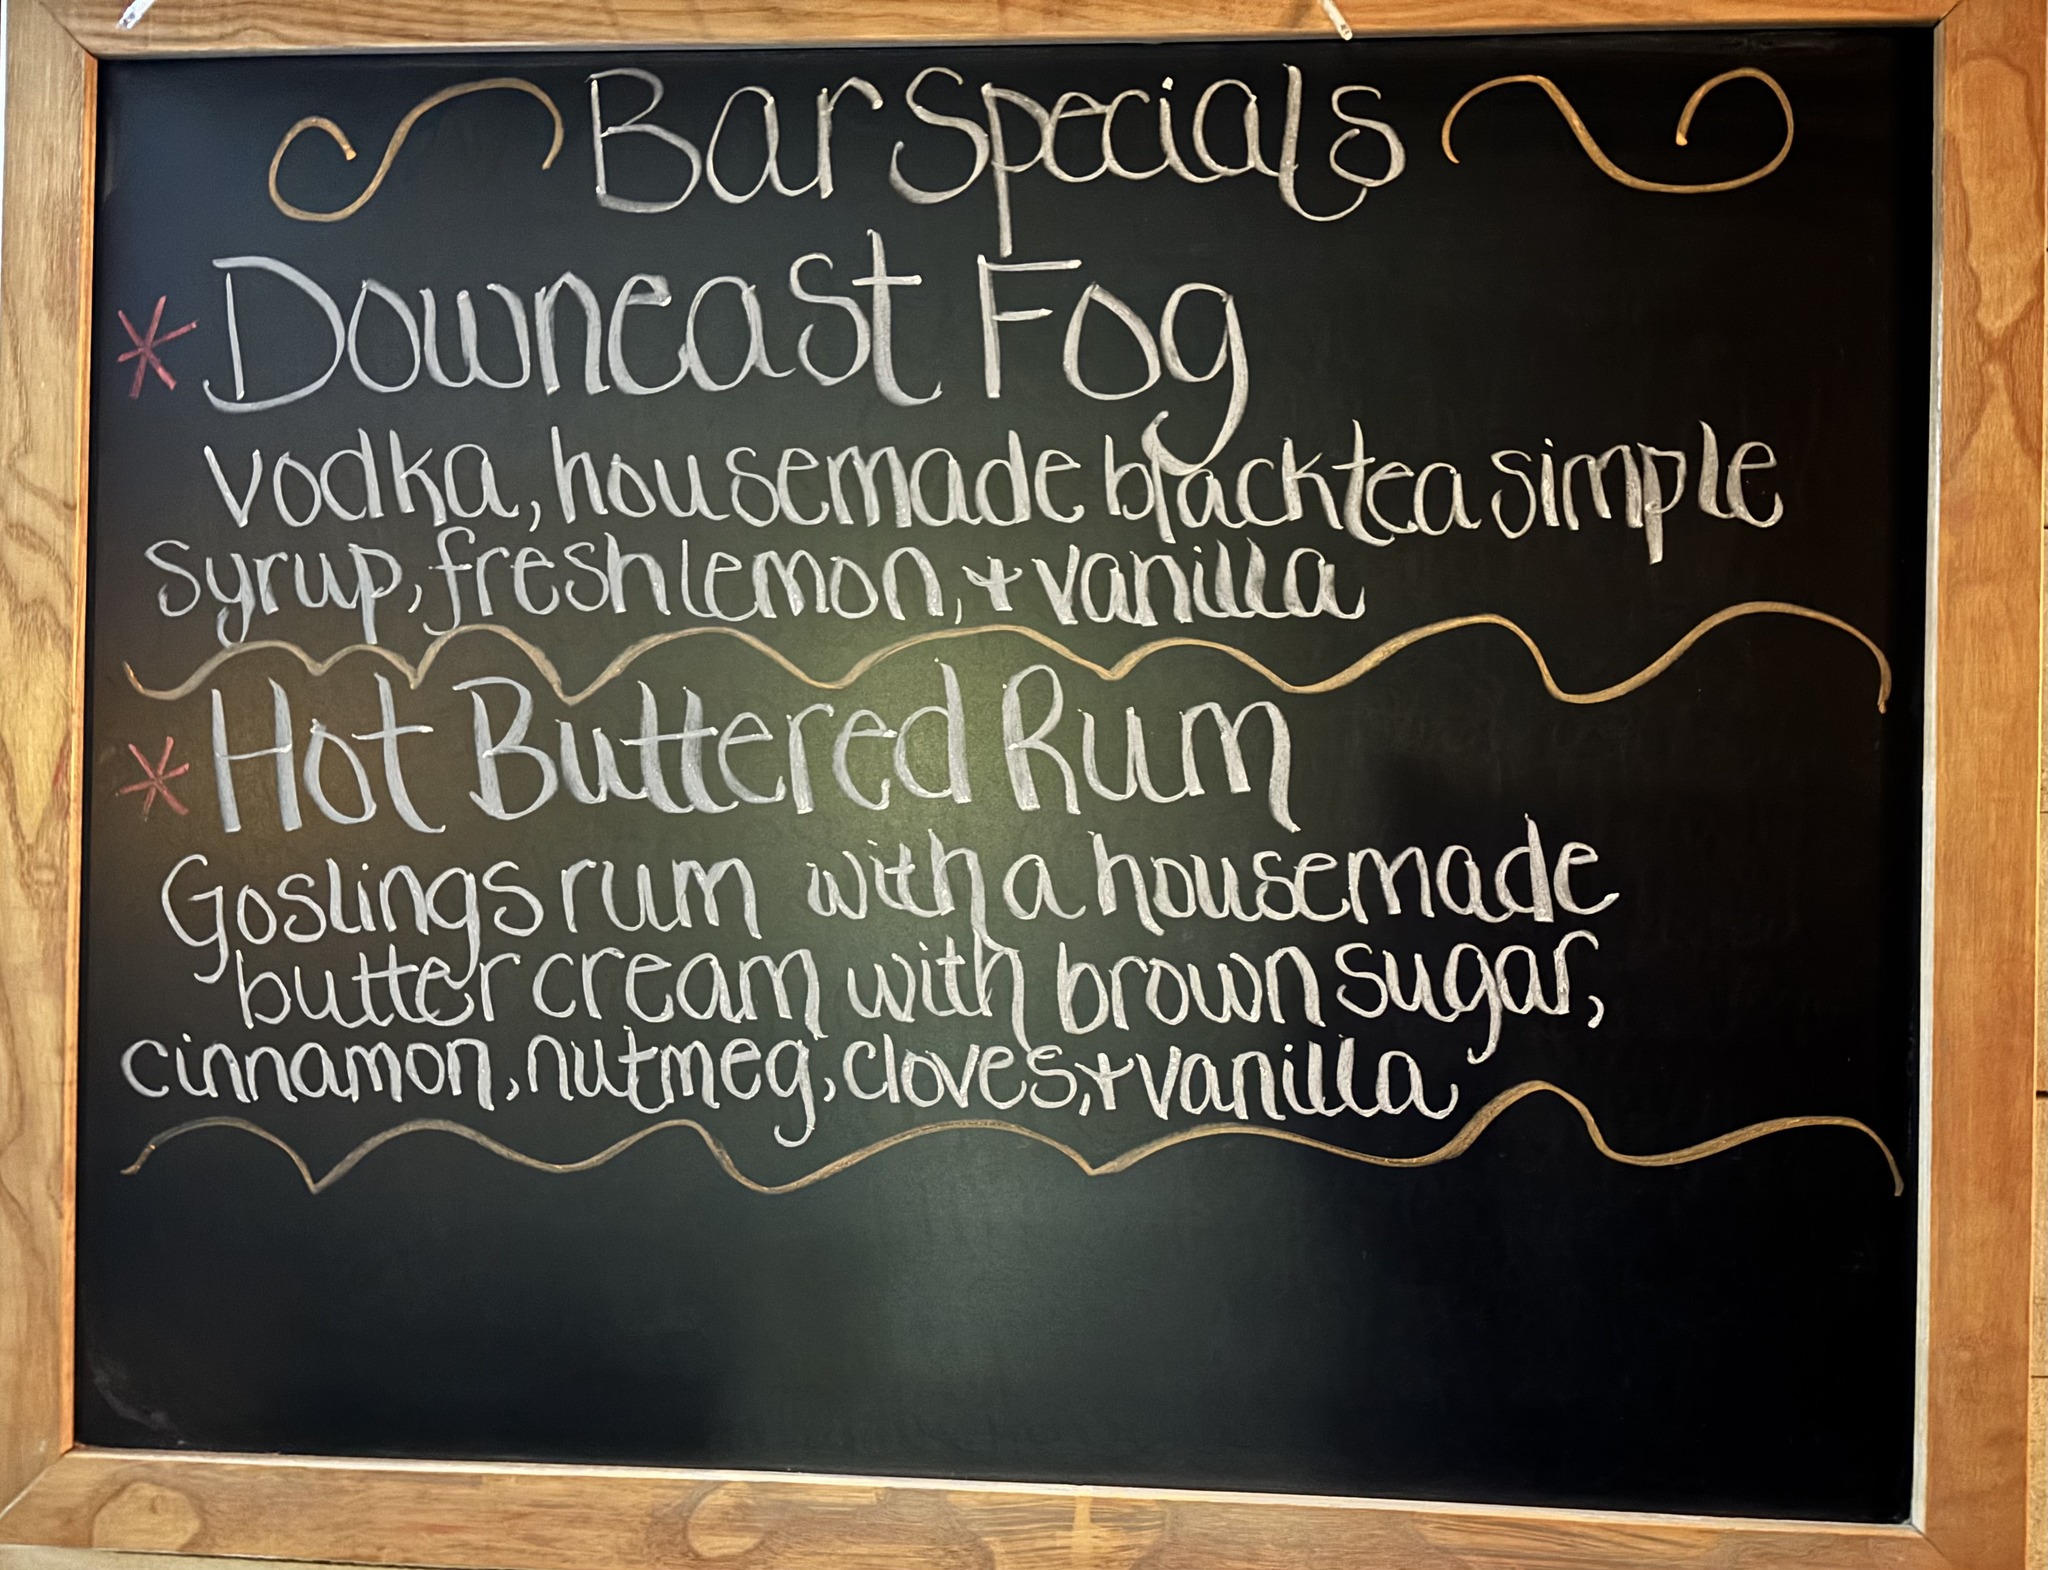 Bar Specials
* Downeast Fog
vodka, housemade black tea simple
syrup, fresh lemon, + vanilla
* Hot Buttered Rum
Goslings rum with a housemade
butter cream with brown sugar,
cinnamon, nutmeg, cloves, + vanilla